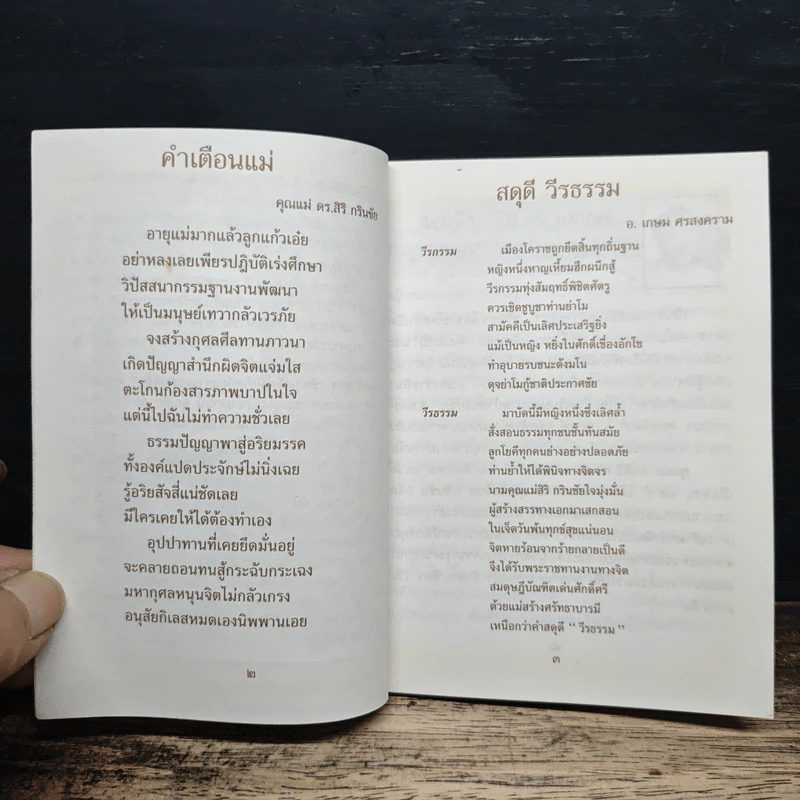 คำเตือนแม่
คุณแม่ ดร.สิริ กรินชัย
อายุแม่มากแล้วลูกแก้วเอ๋ย
อย่าหลงเลยเพียรปฏิบัติเร่งศึกษา
วิปัสสนากรรมฐานงานพัฒนา
ให้เป็นมนุษย์เทวากลัวเวรภัย
จงสร้างกุศลศีลทานภาวนา
เกิดปัญญาสำนึกผิดจิตแจ่มใส
ตะโกนก้องสารภาพบาปในใจ
แต่นี้ไปฉันไม่ทำความชั่วเลย
ธรรมปัญญาพาสู่อริยมรรค
ทั้งองค์แปดประจักษ์ไม่นิ่งเฉย
รู้อริยสัจสี่แน่ชัดเลย
มีใครเคยให้ได้ต้องทำเอง
อุปปาทานที่เคยยึดมั่นอยู่
จะคลายถอนทนสู้กระฉับกระเฉง
มหากุศลหนุนจิตไม่กลัวเกรง
อนุสัยกิเลสหมดเองนิพพานเอย
๒
สดุดี วีรธรรม
อ. เกษม ศรสงคราม
วีรกรรม เมืองโคราชถูกยึดสิ้นทุกถิ่นฐาน
หญิงหนึ่งหาญเหี้ยมฮึกผนึกสู้
วีรกรรมทุ่งสัมฤทธิ์พิชิตศัตรู
ควรเชิดชูบูชาท่านย่าโม
สามัคคีเป็นเลิศประเสริฐยิ่ง
แม้เป็นหญิง หยิ่งในศักดิ์เชื่องอักโข
ทำอุบายรบชนะดังมโน
ดุจย่าโมกู้ชาติประกาศชัย
วีรธรรม มาบัดนี้มีหญิงหนึ่งซึ่งเลิศล้ำ
สั่งสอนธรรมทุกชนชั้นทันสมัย
ลูกโยคีทุกคนย่างอย่างปลอดภัย
ท่านย้ำให้ได้พินิจทางจิตจร
นามคุณแม่สิริ กรินชัยใจมุ่งมั่น
ผู้สร้างสรรทางเอกมาเสกสอน
ในเจ็ดวันพ้นทุกข์สุขแน่นอน
จิตหายร้อนจากร้ายกลายเป็นดี
จึงได้รับพระราชทานงานทางจิต
สมดุษฎีบัณฑิตเด่นศักดิ์ศรี
ด้วยแม่สร้างศรัทธาบารมี
เหนือกว่าคำสดุดี “ วีรธรรม ”
๓